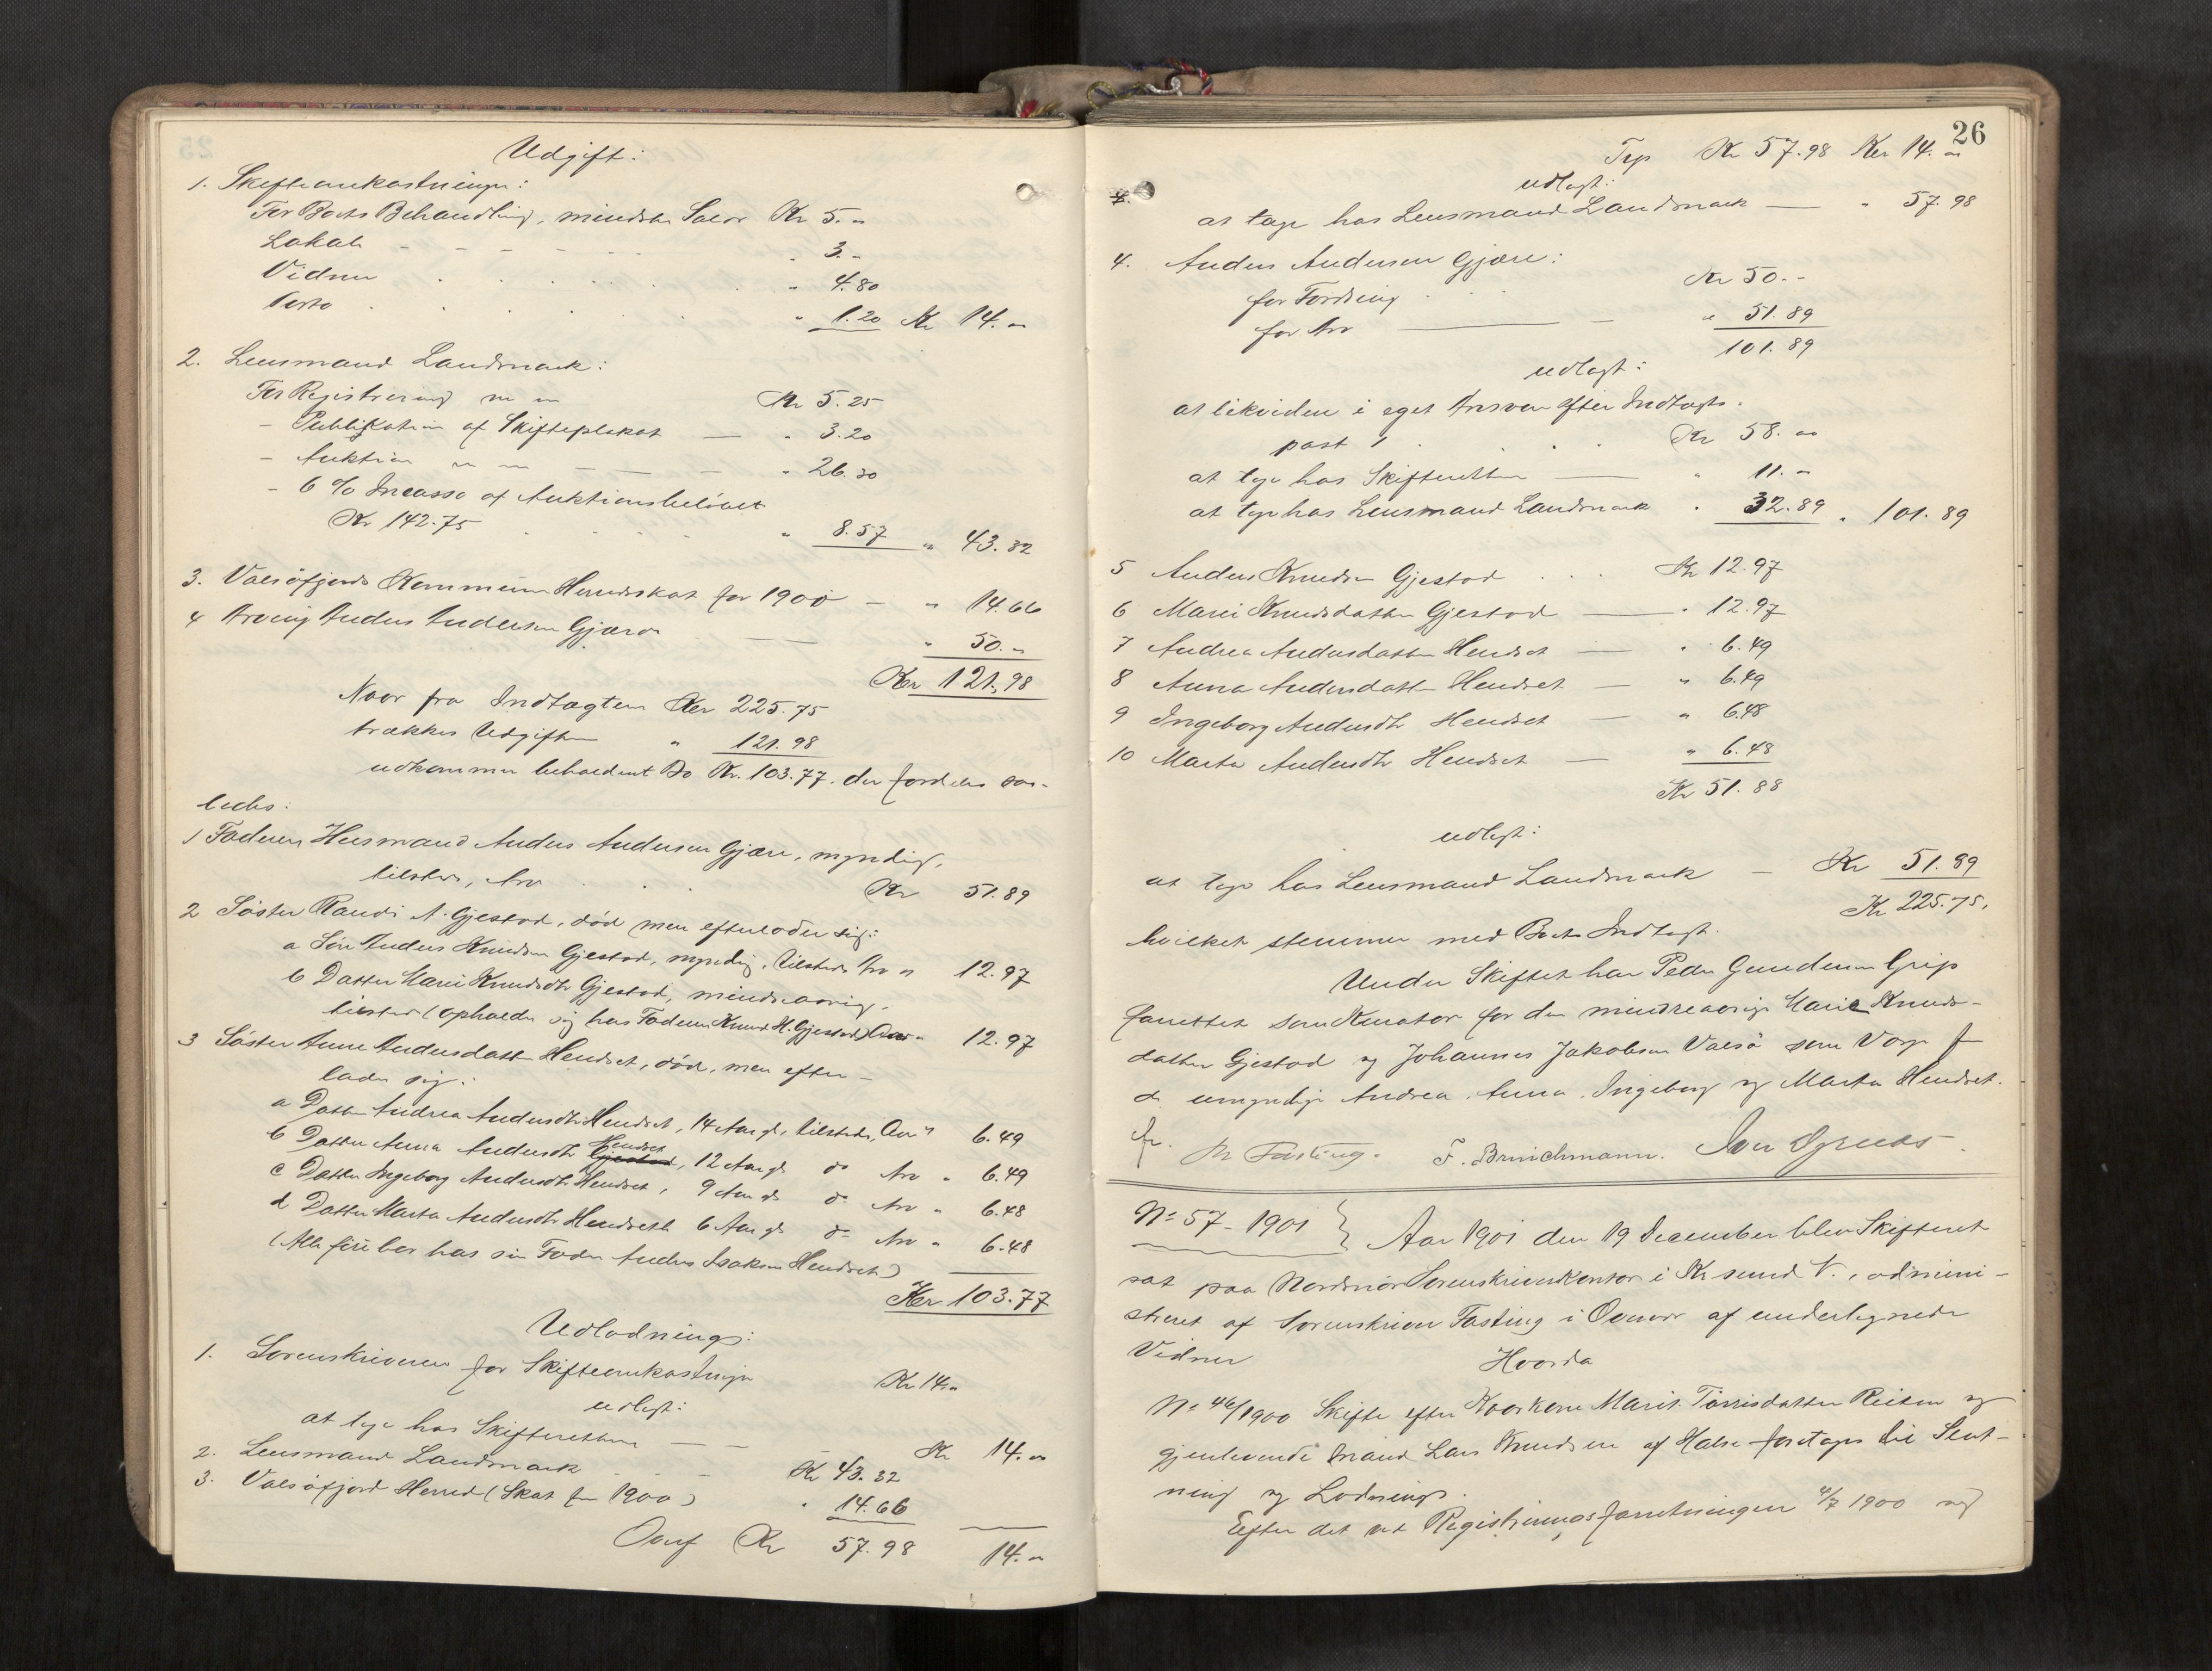 Udgift:
1. Skifteomkostninger:
For Boets Behandling, mindste Salær Kr 5."
Lokale - - - - - " 3."
Vidner . . . . . " 4.80
Porto . . . . . " 1.20 Kr 14."
2. Lensmand Landmark:
For Registrering m m Kr 5.25
- Publikation af Skifteplakat — " 3.20
- Auktion m m — — — " 26.30
- 6 % Incasso af Auktionsbeløbet
Kr 142.75 . . . . " 8.57 " 43.32
3. Valsøfjords Kommune Herredsskat for 1900 — " 14.66
4 Arving Anders Andersen Gjære — — " 50."
Kr 121.98
Naar fra Indtægten Kr 225.75
trækkes Udgiften " 121.98
udkommer beholdent Bo Kr. 103.77. der fordeles saa-
ledes:
1 Faderen Husmand Anders Andersen Gjære, myndig,
tilstede, Arv . . . Kr 51.89
2 Søster Randi A. Gjestad, død men efterlader sig:
a Søn Anders Knudsen Gjestad, myndig, tilstede Arv " 12.97
b Datter Marei Knudsdtr Gjestad, mindreaarig,
tilstede (opholder sig hos Faderen Knud H. Gjestad) Arv " 12.97
3 Søster Anne Andersdatter Hendset, død, men efter-
lader sig:
a Datter Andrea Andersdtr Hendset, 14 Aar gl, tilstede, Arv " 6.49
b Datter Anna Andersdtr Gjestad Hendset, 12 Aar gl do Arv " 6.49
c Datter Ingeborg Andersdtr Hendset, 9 Aar gl do Arv " 6.48
d Datter Marta Andersdtr Hendseth 6 Aar gl do Arv " 6.48
(Alle fire bor hos sin Fader Anders Isaksen Hendset)
Kr 103.77
Udlodning:
1. Sorenskriveren for Skifteomkostninger Kr 14."
udlagt:
at tage hos Skifteretten — — Kr 14."
2. Lensmand Landmark . . - Kr 43.32
3. Valsøfjord Herred (Skat for 1900) " 14.66
Overf Kr 57.98 14."
26
Trp Kr 57.98 Kr 14."
udlagt:
at tage hos Lensmand Landmark — " 57.98
4. Anders Andersen Gjære:
for Fordring . . . Kr 50."
for Arv — — " 51.89
101.89
udlagt:
at likvidere i eget Ansvar efter Indtægts-
post 1 . . . . Kr 58."
at tage hos Skifteretten — " 11."
at tage hos Lensmand Landmark " 32.89 " 101.89
5 Anders Knudsen Gjestad . . . Kr 12.97
6 Marei Knudsdatter Gjestad — " 12.97
7 Andrea Andersdatter Hendset — " 6.49
8 Anna Andersdatter Hendset — " 6.49
9 Ingeborg Andersdtr Hendset — " 6.48
10 Marta Andersdtr Hendset — " 6.48
Kr 51.88
udlagt:
at tage hos Lensmand Landmark — Kr 51.89
Kr 225.75,
hvilket stemmer med Boets Indtægt.
Under Skiftet har Peder Gundersen Grip
forrettet som Kurator for den mindreaarige Marie Knuds-
datter Gjestad og Johannes Jakobsen Valsø som Verge for
de umyndige Andrea, Anna, Ingeborg og Marta Hendset.
Fasting. F. Brinchmann. Iver
No 57 - 1901 } Aar 1901 den 19 December blev Skifteret
sat paa Nordmør Sorenskriverkontor i Kr sund N., admini-
streret af Sorenskriver Fasting i Overvær af undertegnede
Vidner
Hvorda
No 46/1900 Skifte efter Kaarkone Marit Tørrisdatter Reiten og
gjenlevende Mand Lars Knudsen af Halse foretages til Slut-
ning og Lodning.
Efter det ved Registreringsforretningen 4/7 1900 og